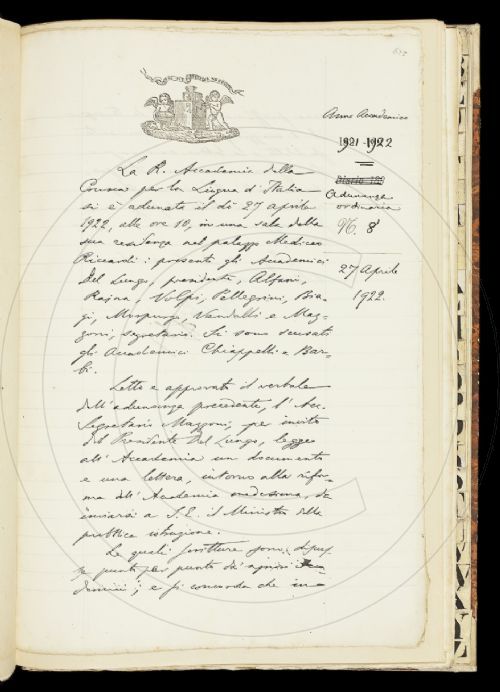 Anno Accademico
1921-1922
Adunanza
ordinaria
N. 8
27 Aprile
1922.
La R. Accademia della
Crusca per la Lingua d'Italia
si è adunata il dì 27 aprile
1922, alle ore 10, in una sala della
sua residenza nel palazzo Mediceo
Riccardi: presenti gli Accademici
Del Lungo, presidente, Alfani,
Rajna, Volpi, Pellegrini, Bia-
gi, Morpurgo, Vandelli e Maz-
zoni, segretario. Si sono scusati
gli Accademici Chiappelli e Bar-
bi.
Letto e approvato il verbale
dell'adunanza precedente, l'Acc.
Segretario Mazzoni, per invito
del Presidente Del Lungo, legge
all'Accademia un documento
e una lettera, intorno alla rifor-
ma dell'Accademia medesima, da
inviarsi a S. E. il Ministro della
pubblica istruzione.
Le quali scritture sono discus-
se punto per punto da' signori Acca
demici; e si concorda che in